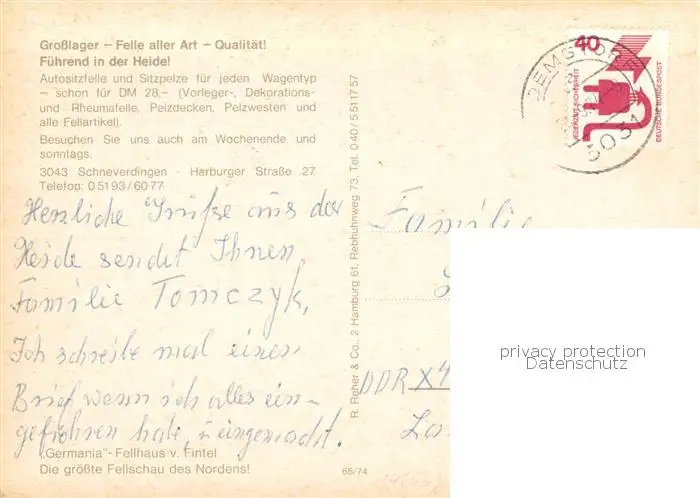 Großlager – Felle aller Art – Qualität!
Führend in der Heide!
Autositzfelle und Sitzpelze für jeden Wagentyp
– schon für DM 28,– (Vorleger-, Dekorations-
und Rheumafelle, Pelzdecken, Pelzwesten und
alle Fellartikel).
Besuchen Sie uns auch am Wochenende und
sonntags.
3043 Schneverdingen · Harburger Straße 27
Telefon: 0 51 93 / 60 77
Herzliche Grüße aus der
Heide sendet Ihnen,
Familie Tomczyk,
Ich schreibe mal einen
Brief wenn ich alles ein-
gefrohren habe, u. eingemacht.
„Germania"-Fellhaus v. Fintel
Die größte Fellschau des Nordens!
65/74
R. Reher & Co., 2 Hamburg 61, Rebhuhnweg 73, Tel. 0 40 / 5 51 17 57
40
JEDERZEIT SICHERHEIT
DEUTSCHE BUNDESPOST
Familie
DDR X4
privacy protection
Datenschutz